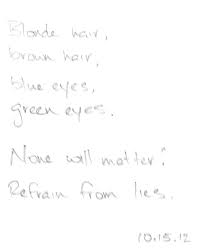 Blonde hair,
brown hair,
blue eyes,
green eyes.
None will matter.
Refrain from lies.
10.15.12